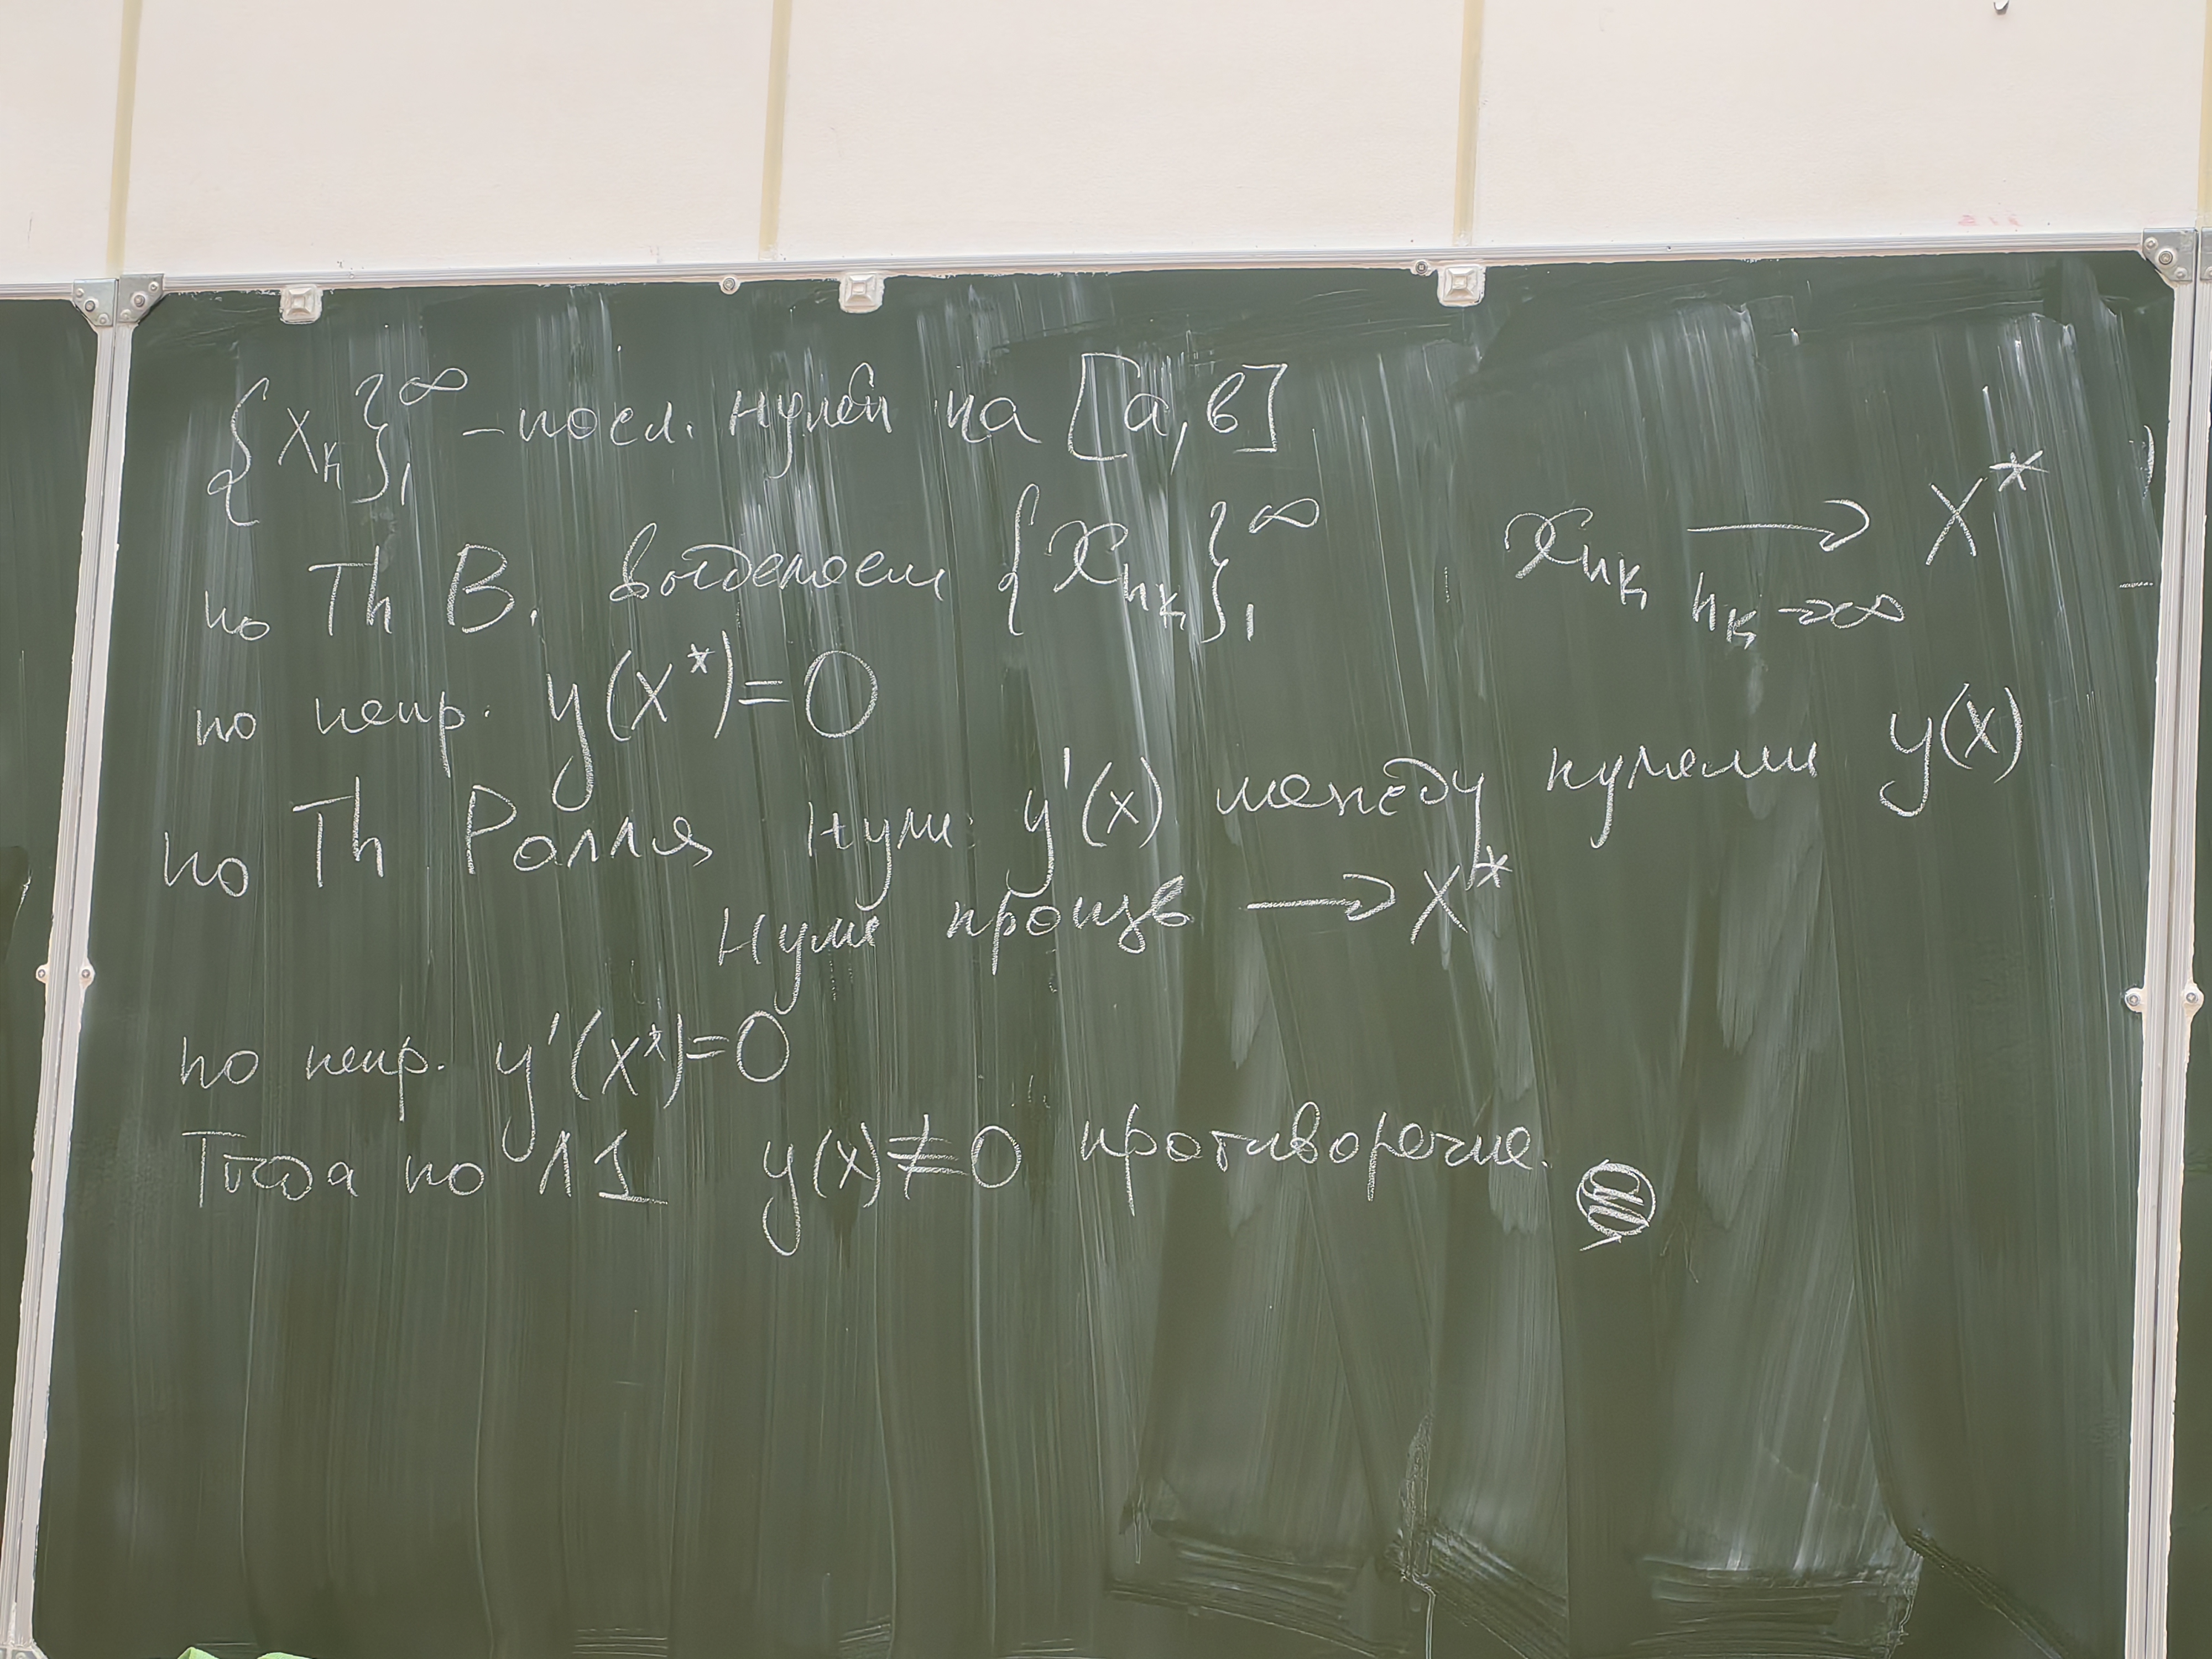 {x_k}_1^∞ – посл. нулей на [a, b]
по Th В. выделяем {x_{n_k}}_1^∞ x_{n_k} ⟶ x^*
n_k→∞
по непр. y(x^*)=0
по Th Ролля нули y'(x) между нулями y(x)
нули произв ⟶ x^*
по непр. y'(x^*)=0
Тогда по Л1 y(x)≢0 противоречие.